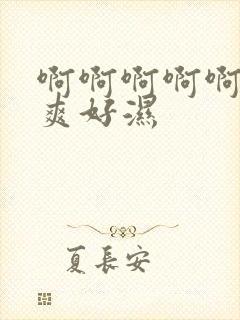 啊啊啊啊啊
爽好濕
夏長安